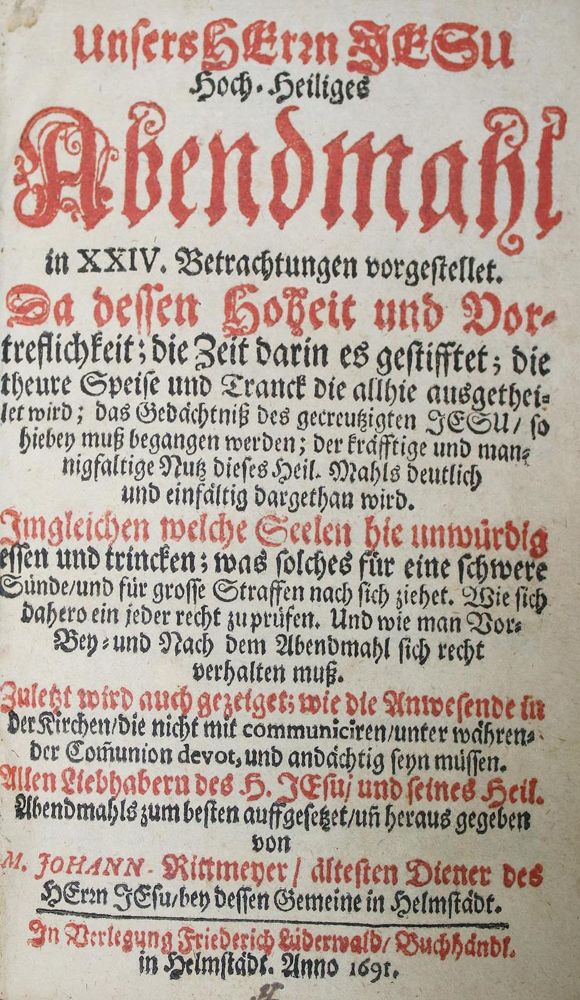 Unsers HErrn JESU
Hoch-Heiliges
Abendmahl
in XXIV. Betrachtungen vorgestellet.
Da dessen Hoheit und Vor-
treflichkeit; die Zeit darin es gestifftet; die
theure Speise und Tranck die allhie ausgethei-
let wird; das Gedächtniß des gecreutzigten JESU/ so
hiebey muß begangen werden; der kräfftige und man-
nigfaltige Nutz dieses Heil. Mahls deutlich
und einfältig dargethan wird.
Imgleichen welche Seelen hie unwürdig
essen und trincken; was solches für eine schwere
Sünde/und für grosse Straffen nach sich ziehet. Wie sich
dahero ein jeder recht zu prüfen. Und wie man Vor-
Bey- und Nach dem Abendmahl sich recht
verhalten muß.
Zuletzt wird auch gezeiget; wie die Anwesende in
der Kirchen/die nicht mit communiciren/unter währen-
der Com̃union devot, und andächtig seyn müssen.
Allen Liebhabern des H. JEsu/ und seines Heil.
Abendmahls zum besten auffgesetzet/uñ heraus gegeben
von
M. JOHANN. Rittmeyer/ ältesten Diener des
HErrn JEsu/bey dessen Gemeine in Helmstädt.
In Verlegung Friederich Lüderwald/ Buchhändl.
in Helmstädt. Anno 1691.